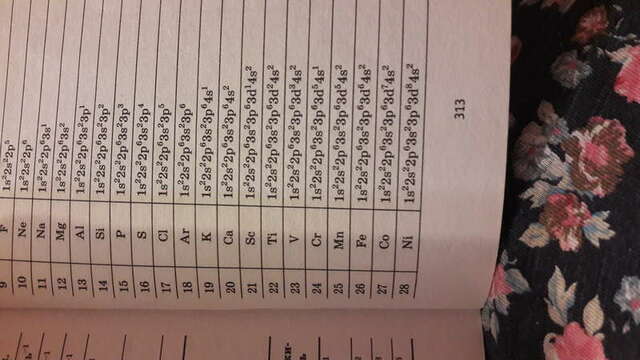 9 F 1s²2s²2p⁵
10 Ne 1s²2s²2p⁶
11 Na 1s²2s²2p⁶3s¹
12 Mg 1s²2s²2p⁶3s²
13 Al 1s²2s²2p⁶3s²3p¹
14 Si 1s²2s²2p⁶3s²3p²
15 P 1s²2s²2p⁶3s²3p³
16 S 1s²2s²2p⁶3s²3p⁴
17 Cl 1s²2s²2p⁶3s²3p⁵
18 Ar 1s²2s²2p⁶3s²3p⁶
19 K 1s²2s²2p⁶3s²3p⁶4s¹
20 Ca 1s²2s²2p⁶3s²3p⁶4s²
21 Sc 1s²2s²2p⁶3s²3p⁶3d¹4s²
22 Ti 1s²2s²2p⁶3s²3p⁶3d²4s²
23 V 1s²2s²2p⁶3s²3p⁶3d³4s²
24 Cr 1s²2s²2p⁶3s²3p⁶3d⁵4s¹
25 Mn 1s²2s²2p⁶3s²3p⁶3d⁵4s²
26 Fe 1s²2s²2p⁶3s²3p⁶3d⁶4s²
27 Co 1s²2s²2p⁶3s²3p⁶3d⁷4s²
28 Ni 1s²2s²2p⁶3s²3p⁶3d⁸4s²
313